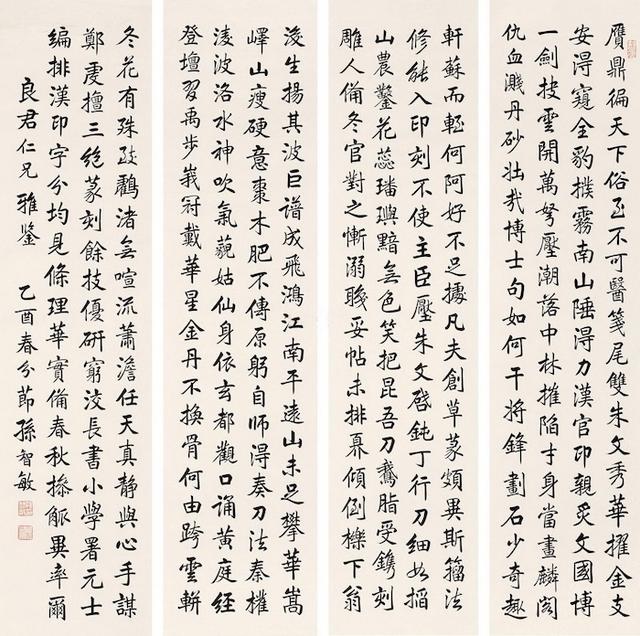 贋鼎徧天下俗至不可醫箋尾雙朱文秀華擢金支
安淂窺全豹撲霧南山陲淂力漢官印親炙文國博
一劍披雲開萬弩壓潮落中林摧陷寸身當畫麟閣
仇血濺丹砂壯哉博士句如何干將鋒劃石少奇趣
軒蘇而輊何阿好不足據凡夫創草篆頗異斯籀法
修能入印刻不使主臣壓朱文啓鈍丁行刀細如掐
山農鑿花蕊璠璵黯無色笑把昆吾刀鵞脂受鐫刻
雕人備冬官對之慚溺職妥帖未排奡傾倒櫟下翁
浚生揚其波巨譜成飛鴻江南平遠山未足攀華嵩
嶧山瘦硬意棗木肥不傳原躬自師淂奏刀法秦權
淩波洛水神吹氣藐姑仙身依玄都觀口誦黃庭經
登壇習禹步峩冠戴華星金丹不換骨何由跨雲軿
冬花有殊致鸜渚無喧流蕭澹任天真靜與心手謀
鄭虔擅三絕篆刻餘技優研窮洨長書小學署元士
編排漢印字分均見條理華實備春秋摻觚異率爾
良君仁兄雅鑒 乙酉春分節孫智敏